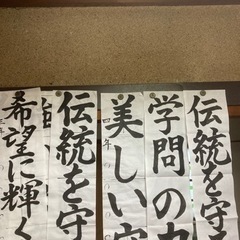 伝統を守
学問の
美しい
四年
伝統を守
希望に輝く